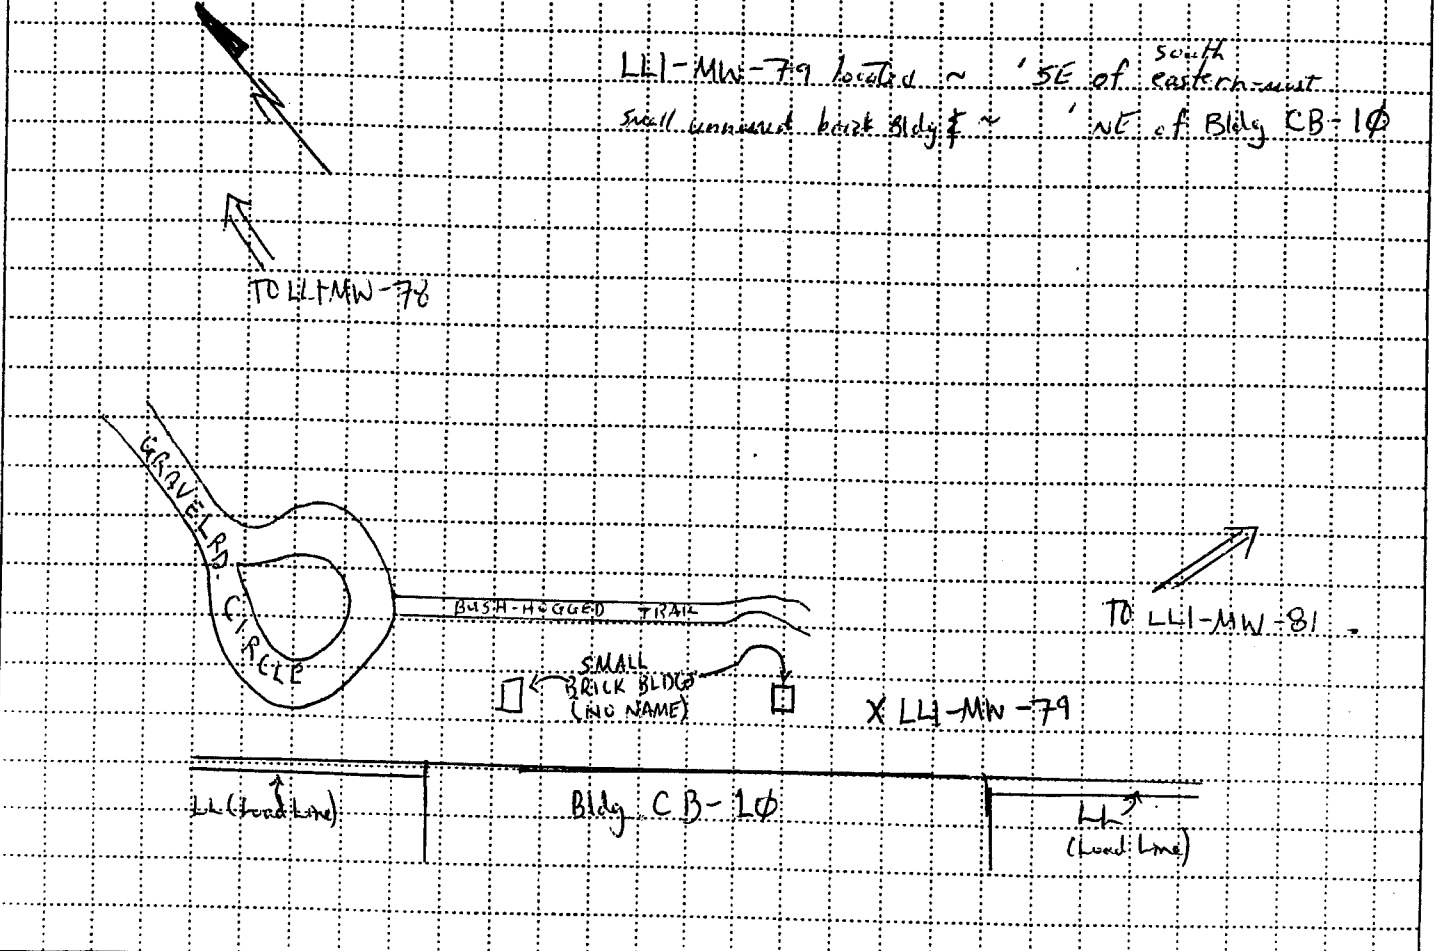 south
LL1-MW-79 located ~ ' SE of eastern-most
small unnamed brick Bldg & ~ ' NE of Bldg CB-1Ø
TO LL1-MW-78
GRAVEL RD.
CIRCLE
BUSH-HOGGED TRAIL
TO LL1-MW-81
SMALL
BRICK BLDGS
(NO NAME)
X LL1-MW-79
LL (Load Line)
Bldg CB-1Ø
LL
(Load Line)